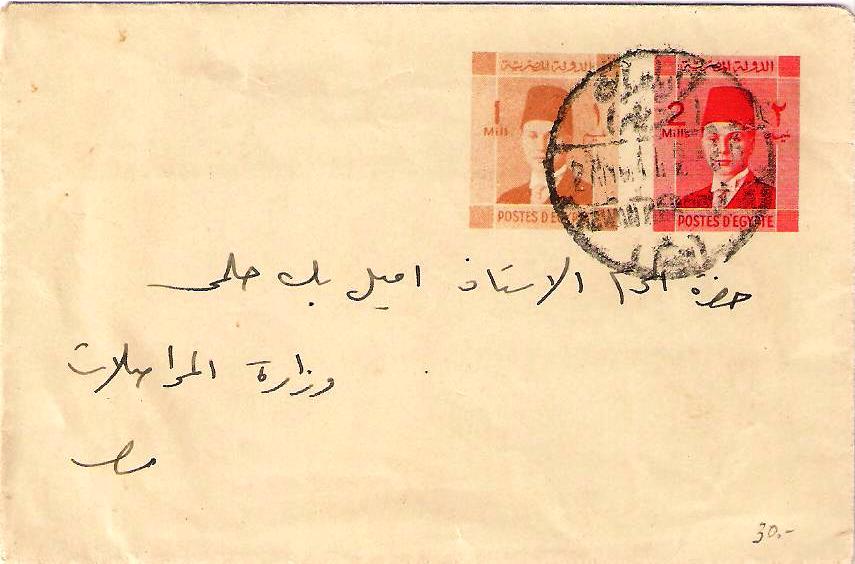 الدولة المصرية
1 Mill
POSTES D'EGYPTE
الدولة المصرية
2 Mills ٢
POSTES D'EGYPTE
حضرة المحترم الاستاذ اميل بك حلمى
وزارة المواصلات
مصر
30.-